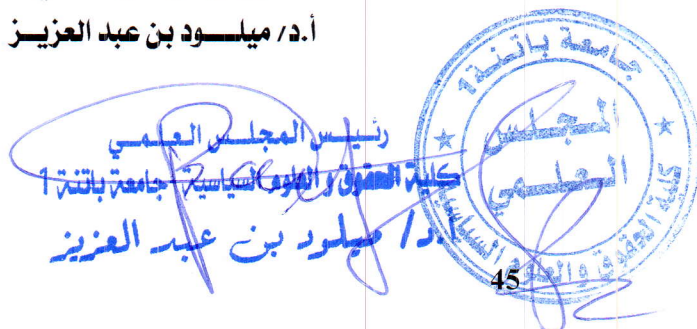 أ.د/ ميلـــود بن عبد العزيــز
رئيس المجلس العلمي
كلية الحقوق و العلوم السياسية - جامعة باتنة 1
أ.د/ ميلود بن عبد العزيز
جامعة باتنة 1
المجلس
العلمي
كلية الحقوق والعلوم السياسية
45